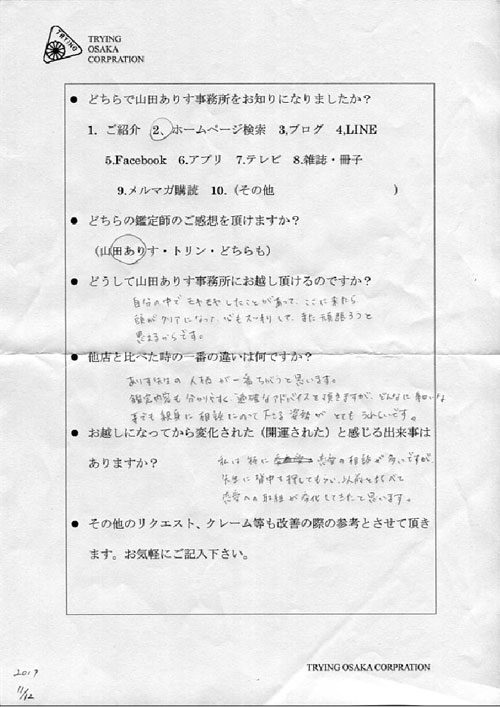 TRYING
TRYING
OSAKA
CORPRATION
● どちらで山田ありす事務所をお知りになりましたか？
1. ご紹介 2、ホームページ検索 3,ブログ 4,LINE
5.Facebook 6.アプリ 7.テレビ 8.雑誌・冊子
9.メルマガ購読 10.（その他 ）
● どちらの鑑定師のご感想を頂けますか？
（山田ありす・トリン・どちらも）
● どうして山田ありす事務所にお越し頂けるのですか？
自分の中でモヤモヤしたことがあって、ここに来たら
頭がクリアになって、心もスッキリして、また頑張ろうと
思えるからです。
● 他店と比べた時の一番の違いは何ですか？
ありす先生の人柄が一番ちがうと思います。
鑑定内容も分かりやすく、適確なアドバイスを頂きますが、どんなに細かい
事でも親身に相談にのって下さる姿勢がとてもうれしいです。
● お越しになってから変化された（開運された）と感じる出来事は
ありますか？
私は特に 恋愛の相談が多いですが
先生に背中を押してもらい、以前と比べて
恋愛への取組が変化してきたと思います。
● その他のリクエスト、クレーム等も改善の際の参考とさせて頂き
ます。お気軽にご記入下さい。
TRYING OSAKA CORPRATION
2019
11/12